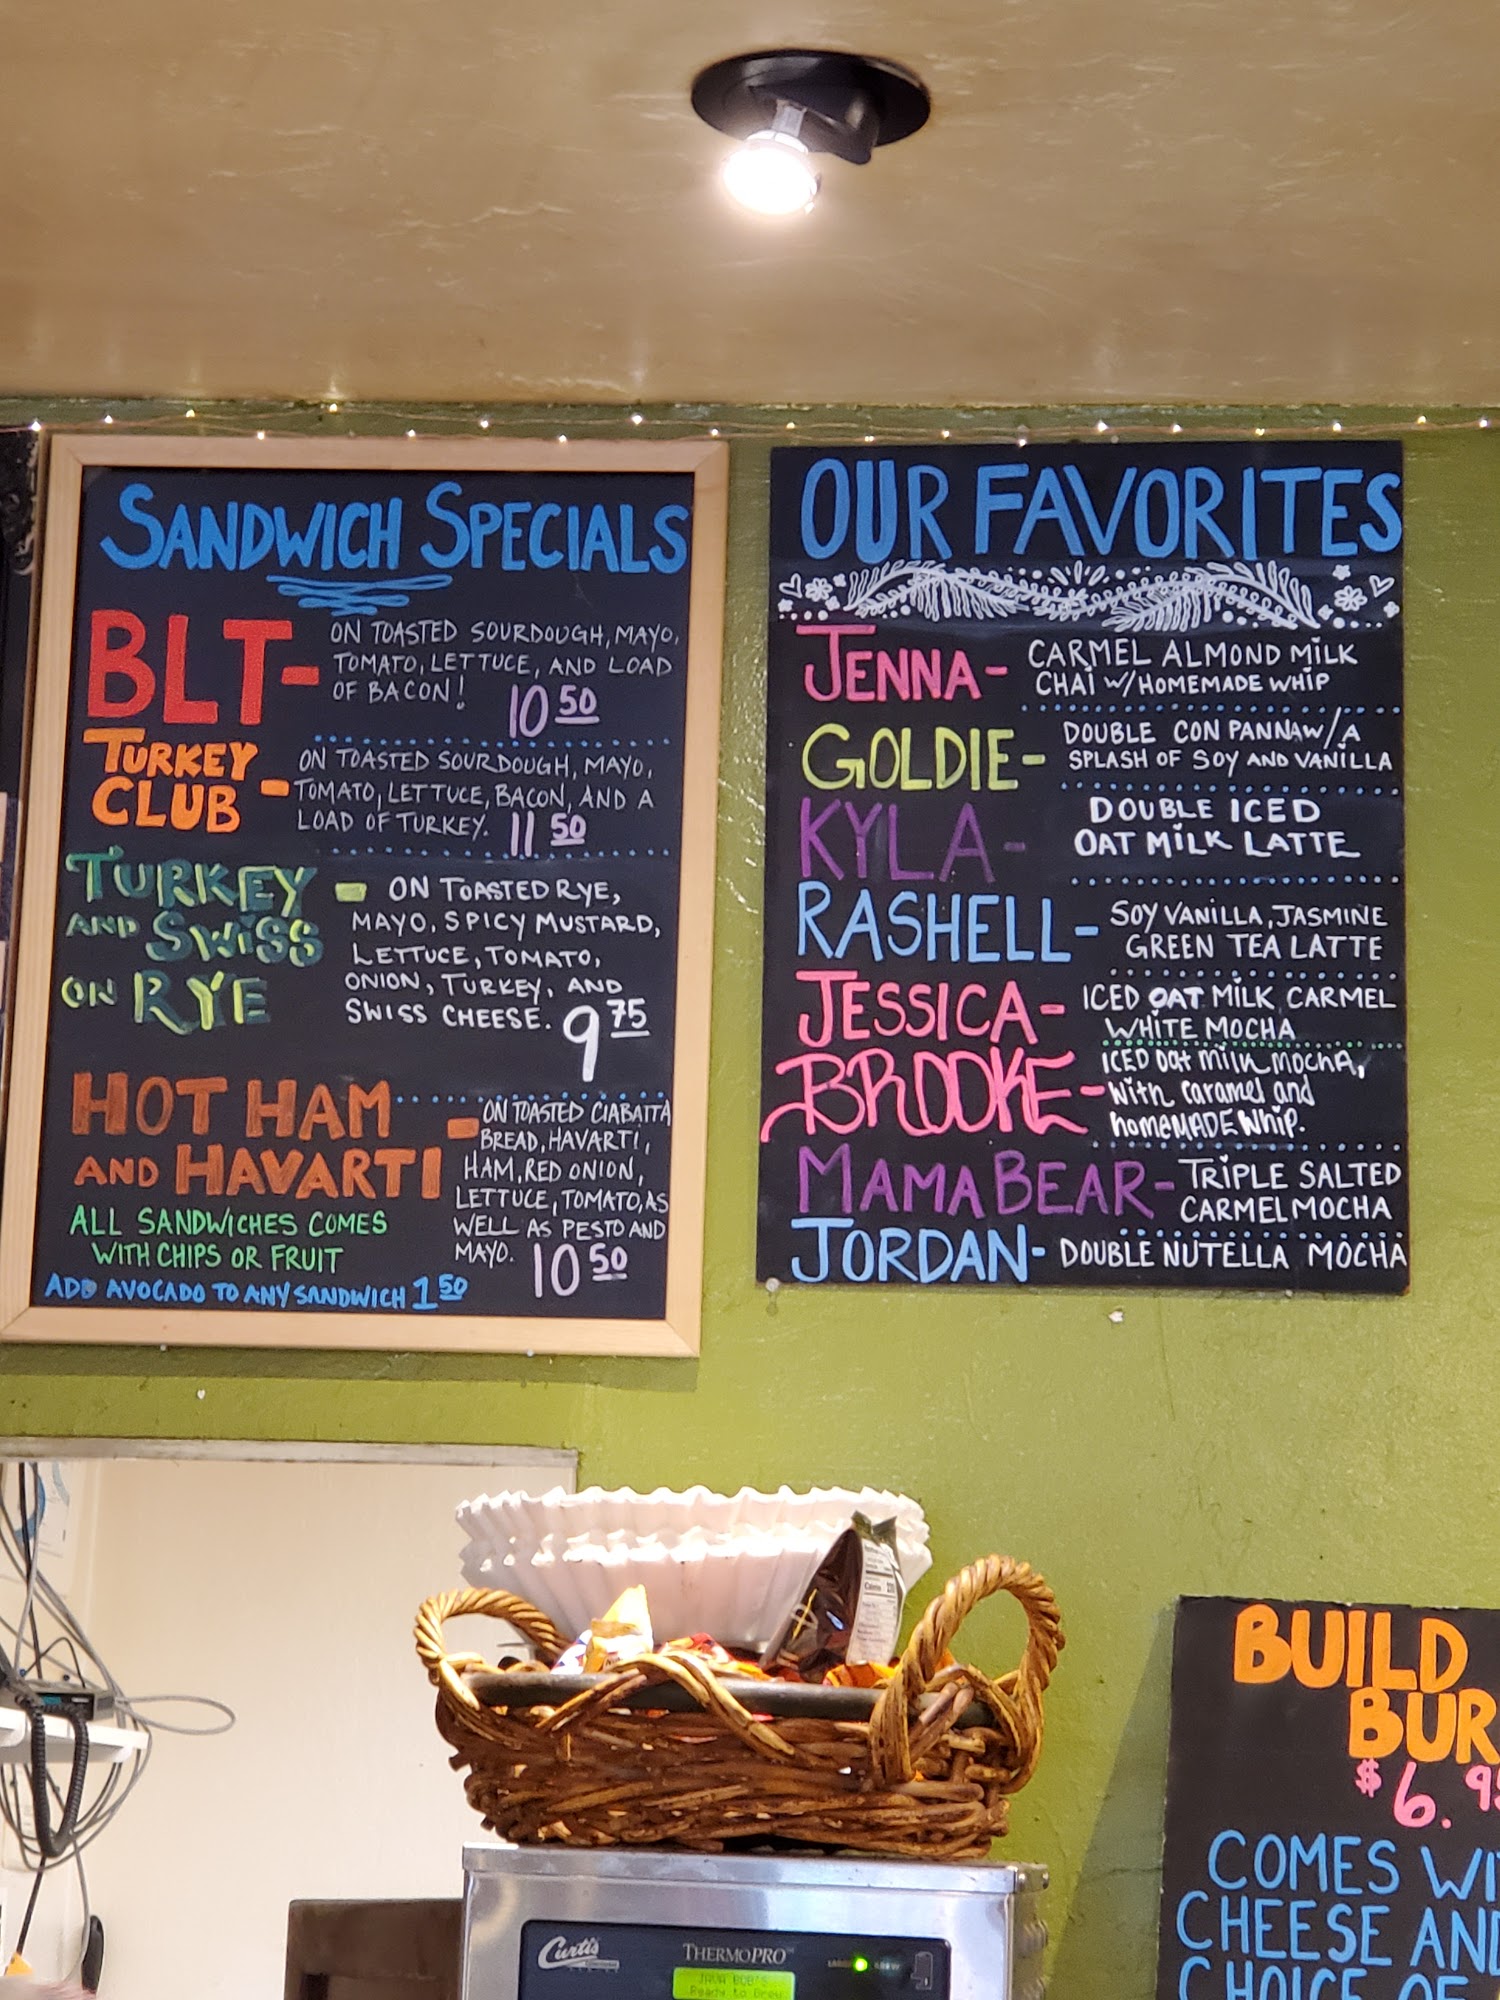 SANDWICH SPECIALS
BLT- ON TOASTED SOURDOUGH, MAYO,
TOMATO, LETTUCE, AND LOAD
OF BACON! 10 50
TURKEY CLUB - ON TOASTED SOURDOUGH, MAYO,
TOMATO, LETTUCE, BACON, AND A
LOAD OF TURKEY. 11 50
TURKEY AND SWISS ON RYE - ON TOASTED RYE,
MAYO, SPICY MUSTARD,
LETTUCE, TOMATO,
ONION, TURKEY, AND
SWISS CHEESE. 9 75
HOT HAM AND HAVARTI - ON TOASTED CIABATTA
BREAD, HAVARTI,
HAM, RED ONION,
LETTUCE, TOMATO, AS
WELL AS PESTO AND
MAYO. 10 50
ALL SANDWICHES COMES
WITH CHIPS OR FRUIT
ADD AVOCADO TO ANY SANDWICH 1 50
OUR FAVORITES
JENNA- CARMEL ALMOND MILK
CHAI W/HOMEMADE WHIP
GOLDIE- DOUBLE CON PANNA W/A
SPLASH OF SOY AND VANILLA
KYLA- DOUBLE ICED
OAT MILK LATTE
RASHELL- SOY VANILLA, JASMINE
GREEN TEA LATTE
JESSICA- ICED OAT MILK CARMEL
WHITE MOCHA
BROOKE- ICED oat milk mocha,
with caramel and
homeMADE whip.
MAMA BEAR- TRIPLE SALTED
CARMEL MOCHA
JORDAN- DOUBLE NUTELLA MOCHA
BUILD
BUR
$6.95
COMES WI
CHEESE AND
CHOICE OF
Curtis
THERMOPRO
JAVA BOB'S
Ready to Brew